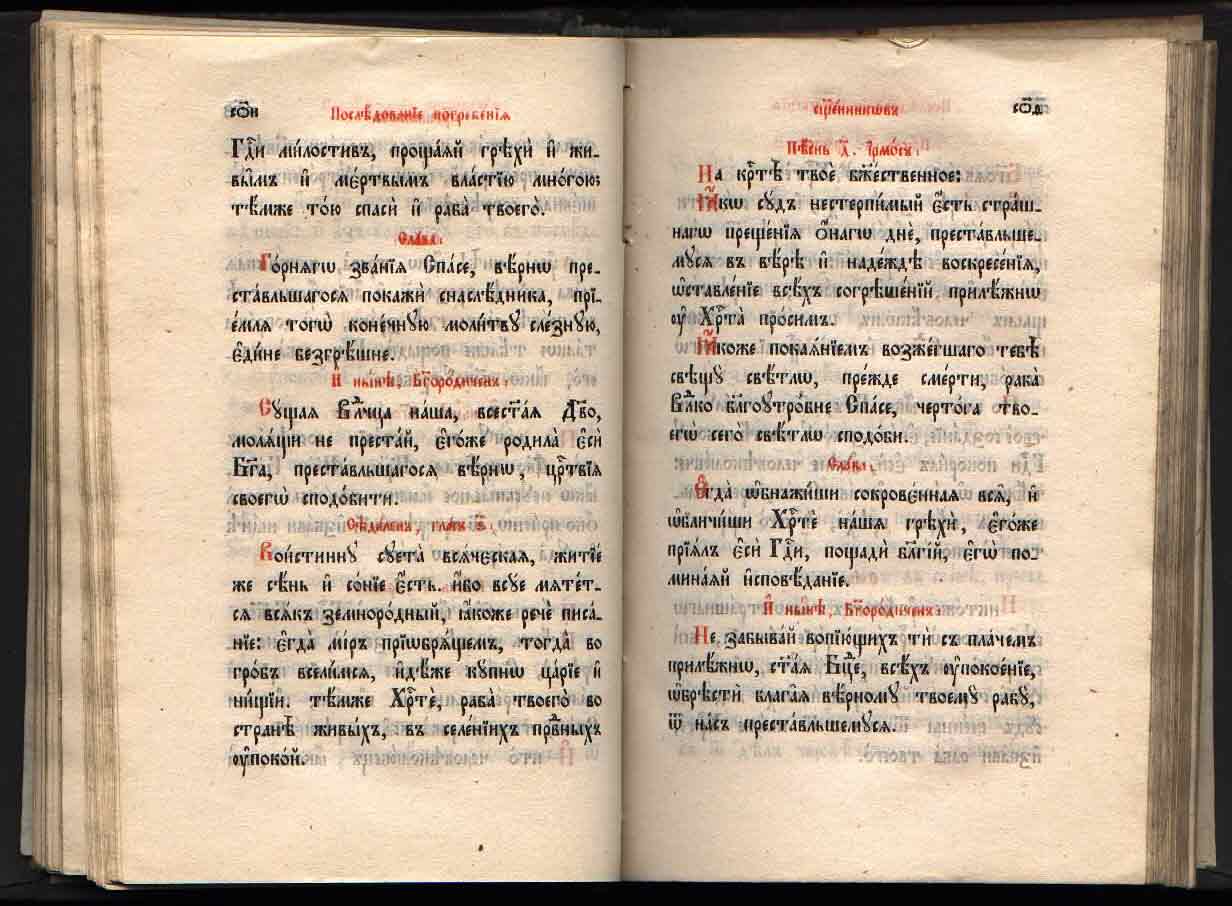 Послѣдованїе погребенїя
Гдⷭ҇и ми́лостивъ, проща́ѧй грѣхѝ и҆ жи-
вы̑мъ и҆ ме́ртвымъ вла́стїю мно́гою:
тѣ́мже то́ю спасѝ и҆ раба̀ твоего̀.
Сла́ва:
Го́рнѧгѡ зва́нїѧ Сп҃се, вѣ́рнѡ пре-
ста́вльшагосѧ покажѝ снаслѣ́дника, прї-
е́млѧ тогѡ̀ коне́чную моли́тву сле́зную,
є҆ди́не безгрѣ́шне.
И҆ ны́нѣ, Бг҃оро́диченъ:
Су́щаѧ Влⷣчца на́ша, всест҃а́ѧ Дв҃о,
молѧ́щи не преста́й, є҆го́же родила̀ є҆сѝ
Бг҃а, преста́вльшагосѧ вѣ́рнѡ, црⷭ҇твїѧ
своегѡ̀ сподо́бити.
Сѣда́ленъ, гла́съ
Вои́стинну суета̀ всѧ́ческаѧ, житїе́
же сѣ́нь и҆ со́нїе є҆́сть. и҆́бо всуе мѧте́т-
сѧ всѧ́къ земноро́дный, ꙗ҆́коже речѐ писа́-
нїе: є҆гда̀ мі́ръ прїѡбрѧ́щемъ, тогда̀ во
гро́бъ всели́мсѧ, и҆дѣ́же ку́пнѡ ца́рїе и҆
ни́щїи. тѣ́мже Хрⷭ҇тѐ, раба̀ твоего̀ во
странѣ̀ живы́хъ, въ селе́нїихъ прⷣвныхъ
ᲂу҆поко́й.
сщ҃е́нникѡвъ
Пѣ́снь д҃. І҆рмо́съ:
На крⷭ҇тѣ̀ твоѐ бж҃е́ственное:
Ꙗ҆́кѡ су́дъ нестерпи́мый є҆́сть стра́ш-
нагѡ преще́нїѧ ѻ҆́нагѡ днѐ, преста́вльше-
мусѧ въ вѣ́рѣ и҆ наде́ждѣ воскресе́нїѧ,
ѡ҆ставле́нїе всѣ́хъ согрѣше́нїй прилѣ́жнѡ
ᲂу҆ Хрⷭ҇та̀ про́симъ.
Ꙗ҆́коже покаѧ́нїемъ возже́гшаго тебѣ̀
свѣщу̀ свѣ́тлѡ, пре́жде сме́рти, раба̀
Влⷣко бл҃гоутро́бне Сп҃се, черто́га тво-
егѡ̀ сего̀ свѣ́тлѡ сподо́би.
Сла́ва:
Є҆гда̀ ѡ҆бнажи́ши сокрове́ннаѧ всѧ̑, и҆
ѡ҆бличи́ши Хрⷭ҇тѐ на́шѧ грѣхѝ, є҆го́же
прїѧ́лъ є҆сѝ Гдⷭ҇и, пощадѝ бл҃гі́й, є҆гѡ̀ по-
мина́ѧй и҆сповѣ́данїе.
И҆ ны́нѣ, Бг҃оро́диченъ:
Не забыва́й вопїю́щихъ тѝ съ пла́чемъ
прилѣ́жнѡ, ст҃а́ѧ Бцⷣе, всѣ́хъ ᲂу҆покое́нїе,
ѡ҆брѣстѝ блага̑ѧ вѣ́рному твоему̀ рабу̀,
ѿ на́съ преста́вльшемусѧ.